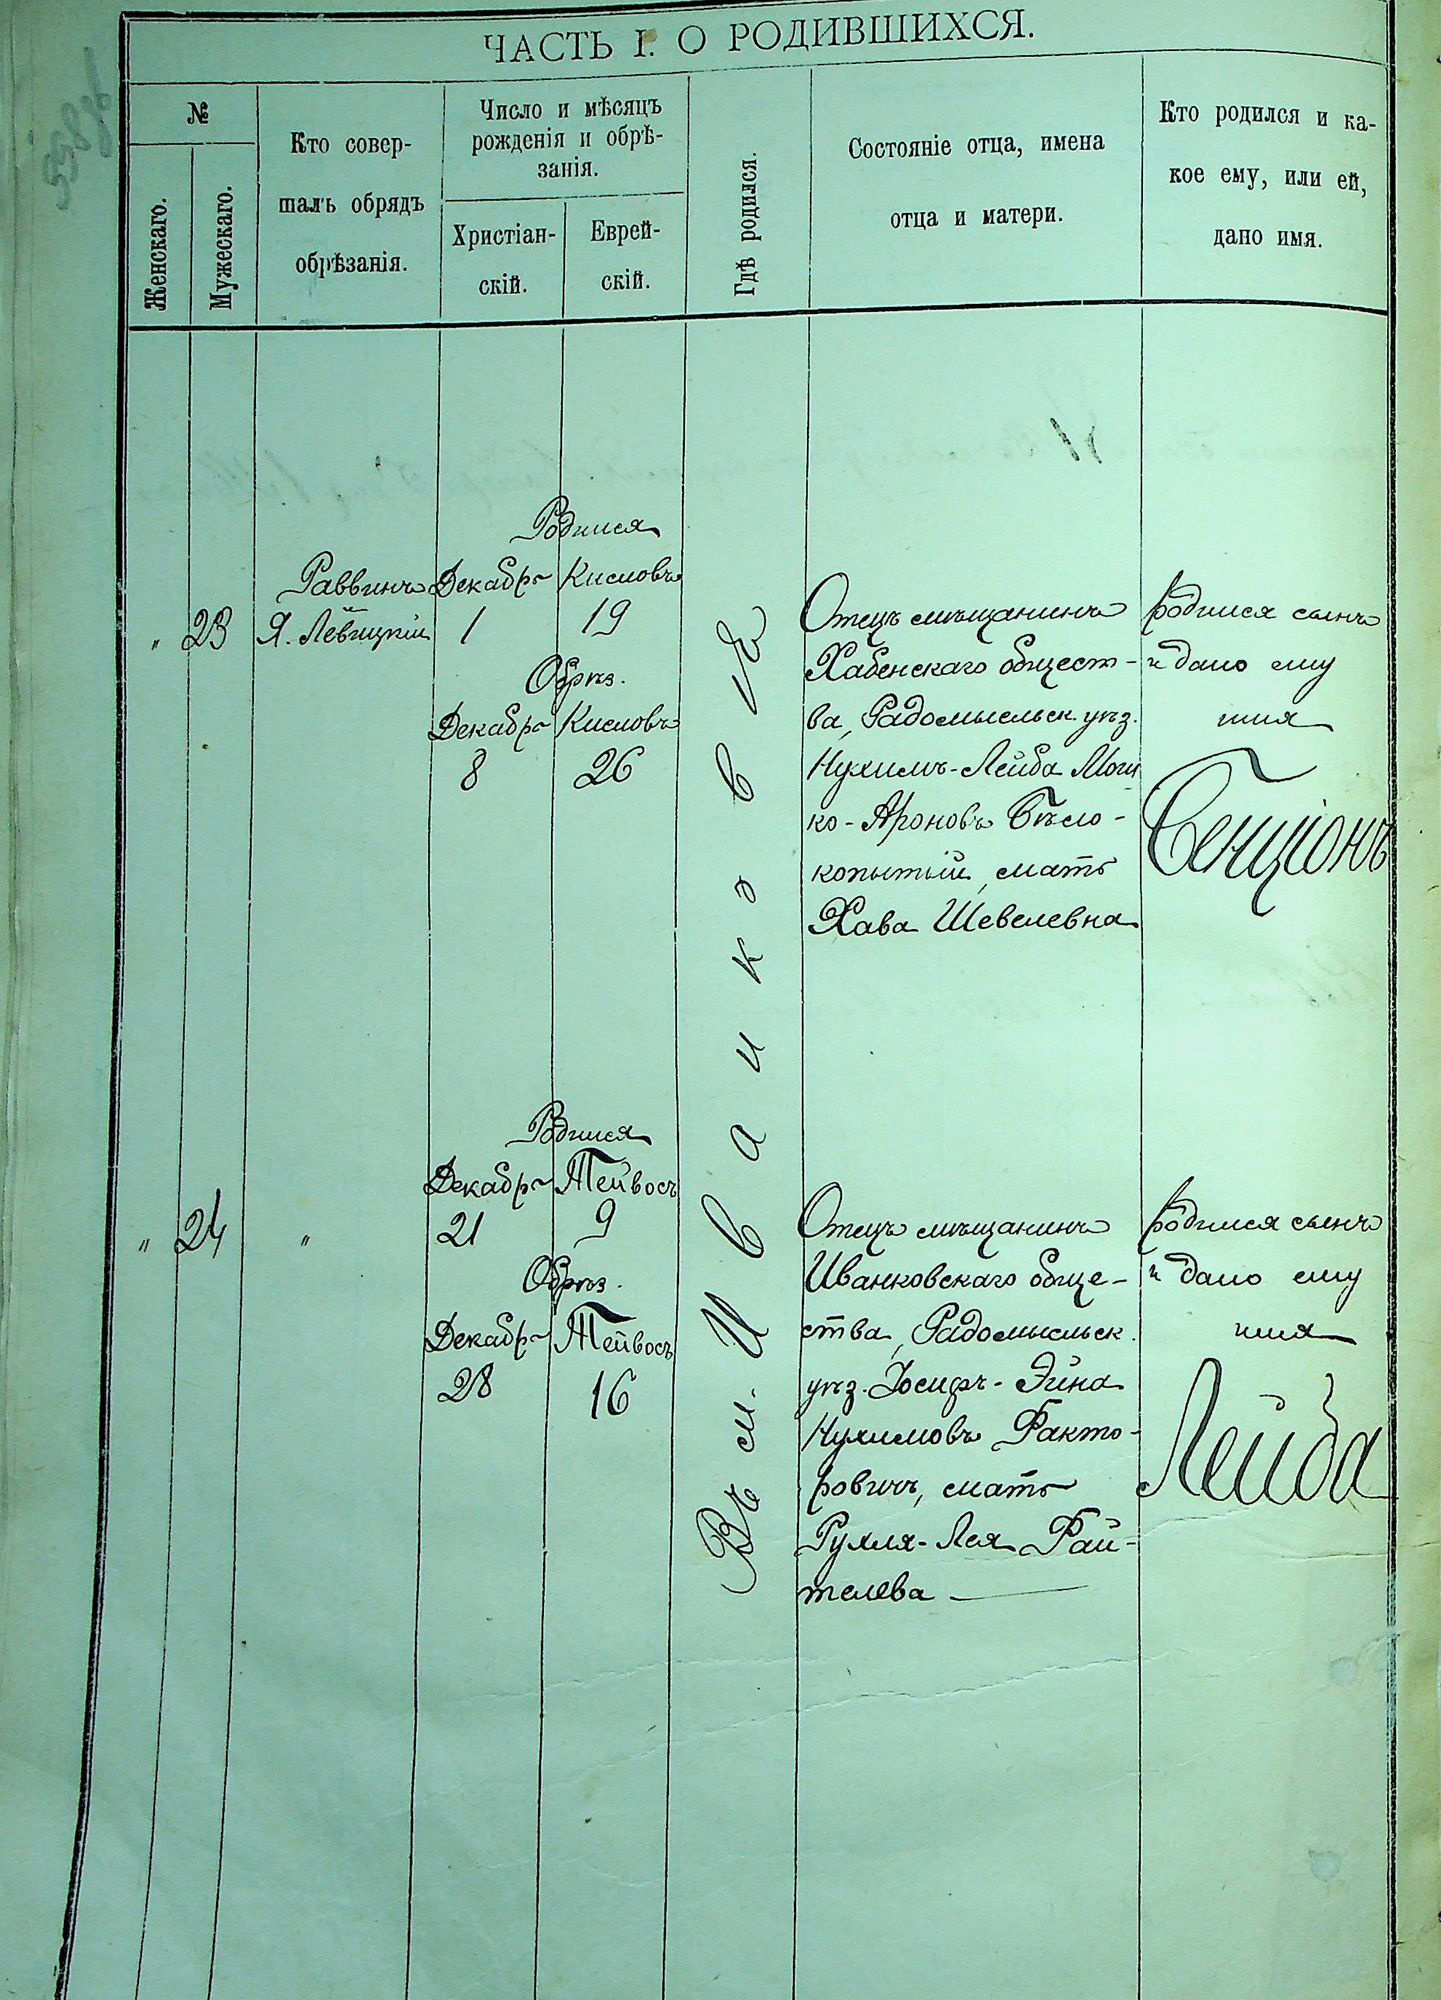 ЧАСТЬ I. О РОДИВШИХСЯ.
№
Женскаго.
Мужескаго.
Кто совер-
шалъ обрядъ
обрѣзанія.
Число и мѣсяцъ
рожденія и обрѣ-
занія.
Христіан-
скій.
Еврей-
скій.
Гдѣ родился.
Состояніе отца, имена
отца и матери.
Кто родился и ка-
кое ему, или ей,
дано имя.
Въ м. Иванковѣ
" 23
Раввинъ
Я. Левицкій
Родился
Декабр. Кисловъ
1 19
Обрѣз.
Декабр. Кисловъ
8 26
Отецъ мѣщанинъ
Хабенскаго общест-
ва, Радомысльск. уѣз.
Нухимъ-Лейба Мош
ко-Ароновъ Бѣло-
копытый, мать
Хава Шевелевна
родился сынъ
и дано ему
имя
Бенціонъ
" 24 "
Родился
Декабр. Тейвосъ
21 9
Обрѣз.
Декабр. Тейвосъ
28 16
Отецъ мѣщанинъ
Иванковскаго обще-
ства, Радомысльск.
уѣз. Іосифъ-Эйна
Нухимовъ Факто-
ровичъ, мать
Рухля-Лея Фай-
телева
родился сынъ
и дано ему
имя
Лейба